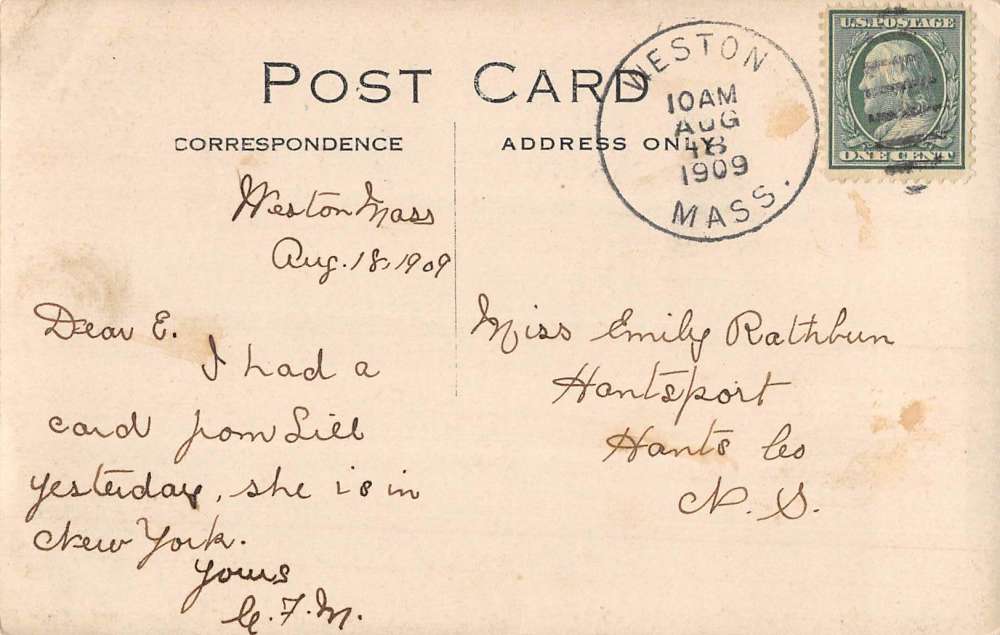 POST CARD
CORRESPONDENCE
ADDRESS ONLY
WESTON
10AM
AUG
18
1909
MASS.
U.S. POSTAGE
ONE CENT
Weston Mass
Aug. 18, 1909
Dear E.
I had a
card from Lill
yesterday, she is in
New York.
Yours
F. M.
Miss Emily Rathbun
Hantsport
Hants Co
N. S.